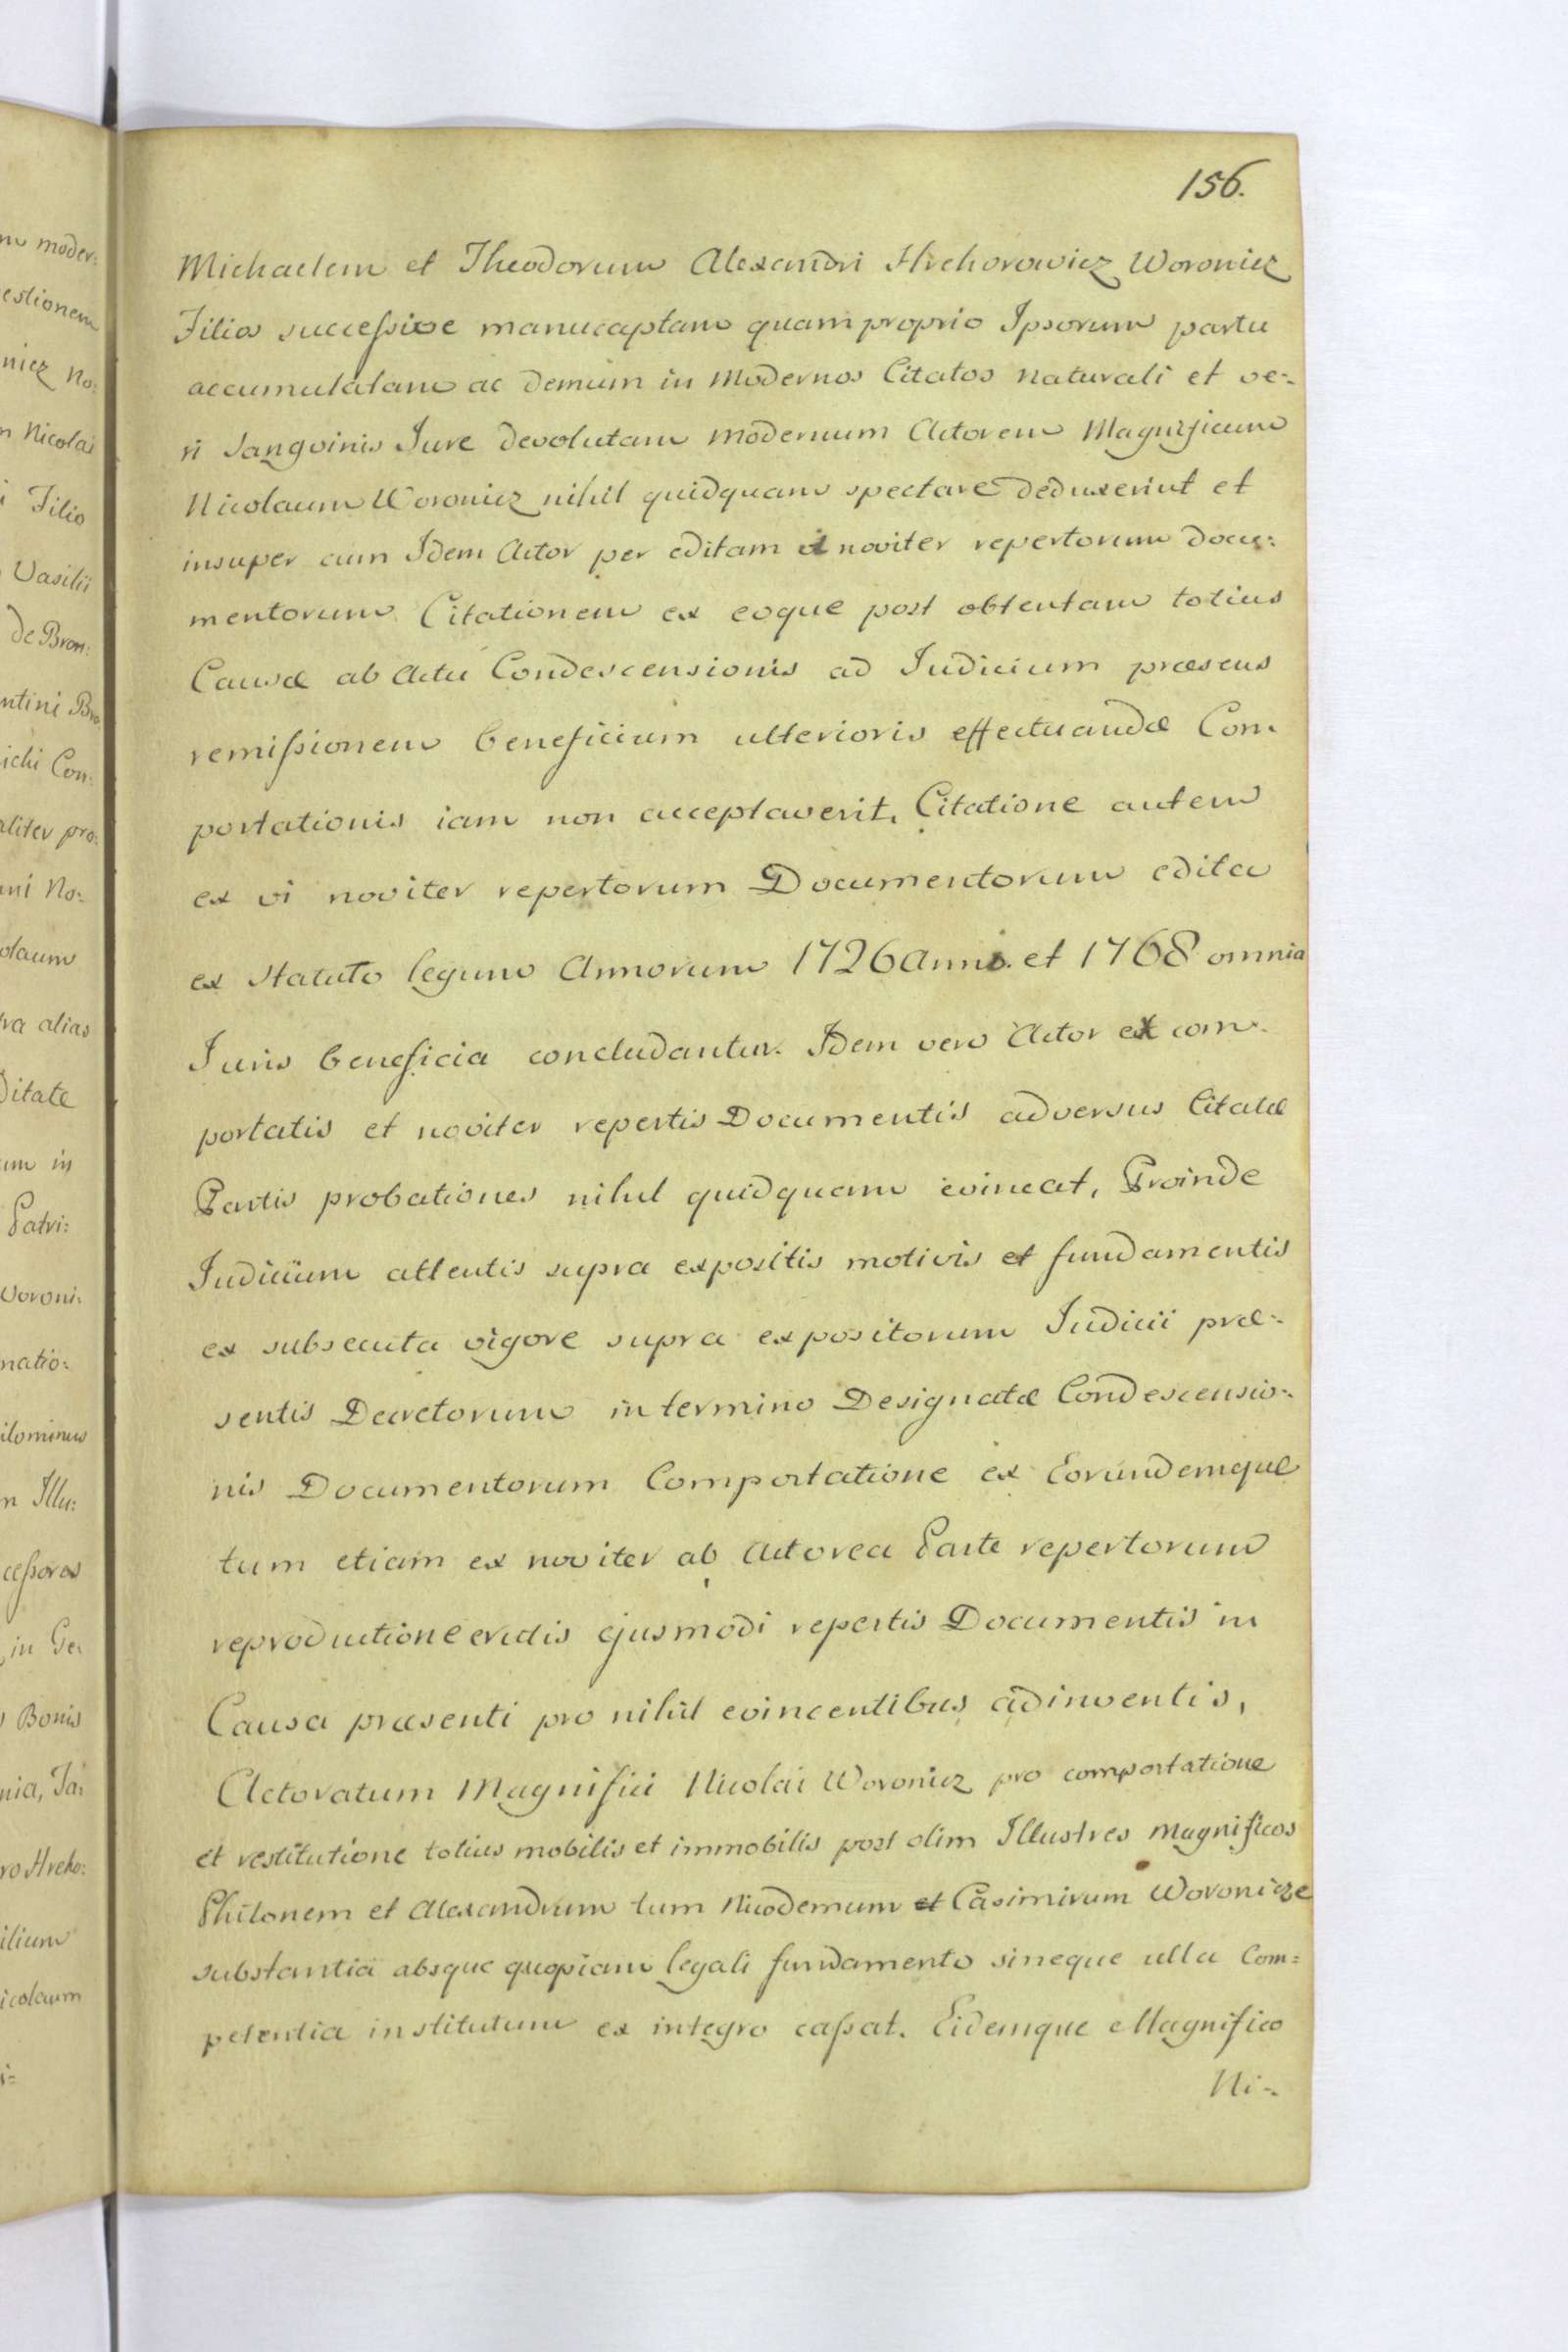 156.
Michaelem et Theodorum Alexandri Hrehorowicz Woronicz
Filios successive manucaptam quam proprio Ipsorum partu
accumulatam ac demum in Modernos Citatos naturali et ve-
ri Sangvinis Jure devolutam modernum Actorem Magnificum
Nicolaum Woronicz nihil quidquam spectare deduxerint et
insuper cum Idem Actor per editam ex noviter repertorum Docu:
mentorum Citationem ex eoque post obtentam totius
Causæ ab Actu Condescensionis ad Judicium præsens
remissionem beneficium ulterioris effectuandæ Com-
portationis iam non acceptaverit, Citatione autem
ex vi noviter repertorum Documentorum edita
ex Statuto legum Annorum 1726 Anni. et 1768 omnia
Juris beneficia concludantur. Idem vero Actor ex com-
portatis et noviter repertis Documentis adversus Citatæ
Partis probationes nihil quidquam evincat, Proinde
Judicium attentis supra expositis motivis et fundamentis
ex subsecuta vigore supra expositorum Judicii præ-
sentis Decretorum in termino Designatæ Condescensio-
nis Documentorum Comportatione ex Eorundemque
tum etiam ex noviter ab Actorea Parte repertorum
reproductione eretis ejusmodi repertis Documentis in
Causa præsenti pro nihil evincentibus adinventis,
Actoratum Magnifici Nicolai Woronicz pro comportatione
et restitutione totius mobilis et immobilis post olim Illustres Magnificos
Philonem et Alexandrum tum Nicodemum et Casimirum Woronicze
substantia absque quopiam legali fundamento sineque ulla Com=
petentia institutum ex integro cassat. Eidemque Magnifico
Ni-
m moder:
estionem
nicz No:
n Nicolai
i Filio
Vasilii
de Bron:
ntini Bro
ichi Con:
aliter pro:
ani No:
olaum
ra alias
ditate
um in
Patri:
Woroni:
natio:
ilominus
n Illu:
cessores
in Ge:
Bonis
nia, Ja:
ro Hreho:
ilium
icolaum
i=